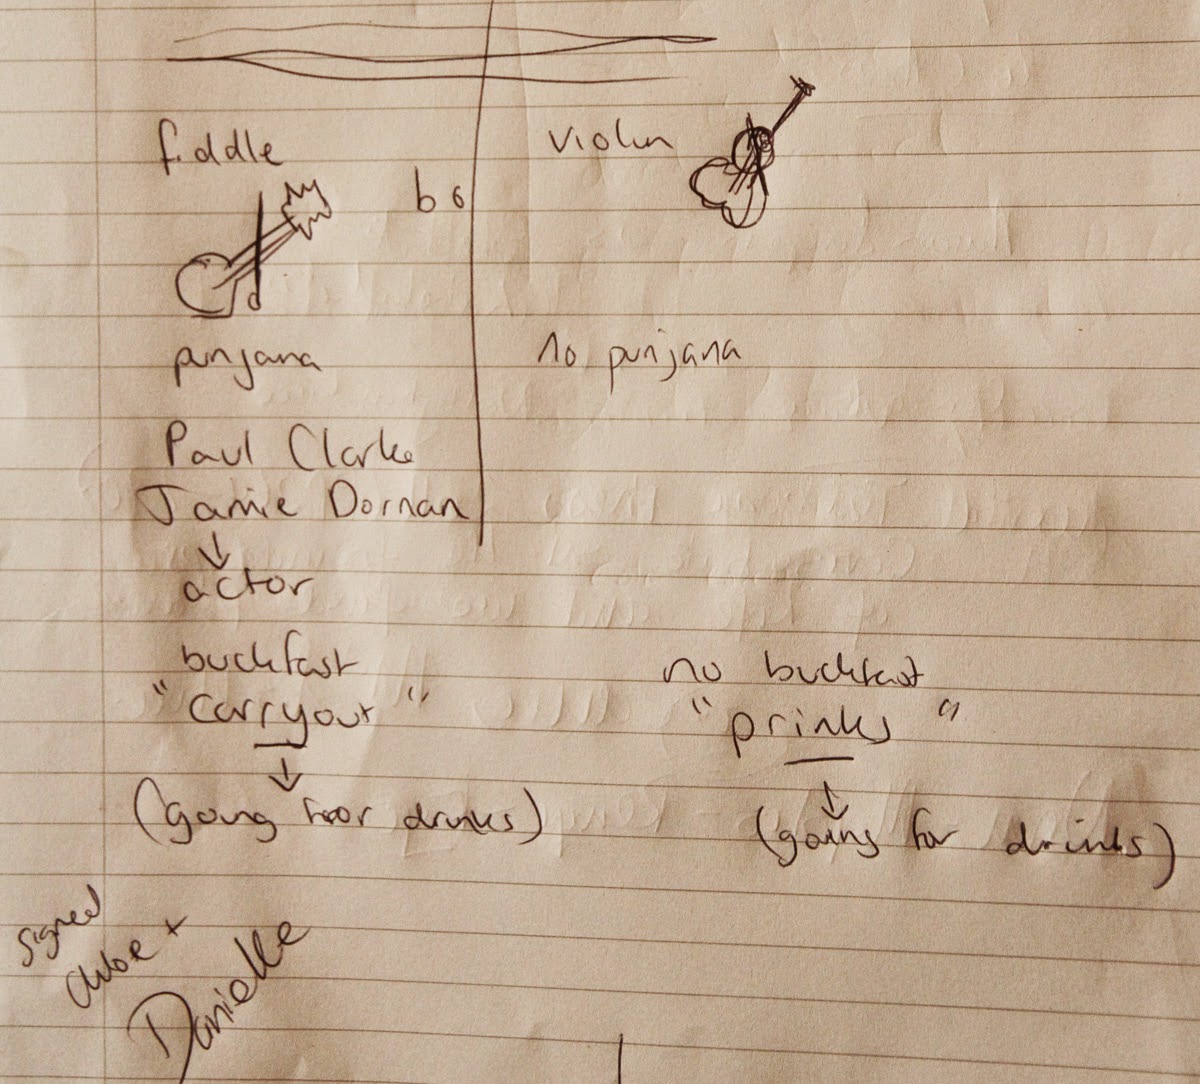 fiddle
violin
bo
punjana
no punjana
Paul Clarke
Jamie Dornan
actor
buckfast
"carryout"
(going foor drinks)
no buckfast
"prinks"
(going for drinks)
signed
Chloe +
Danielle